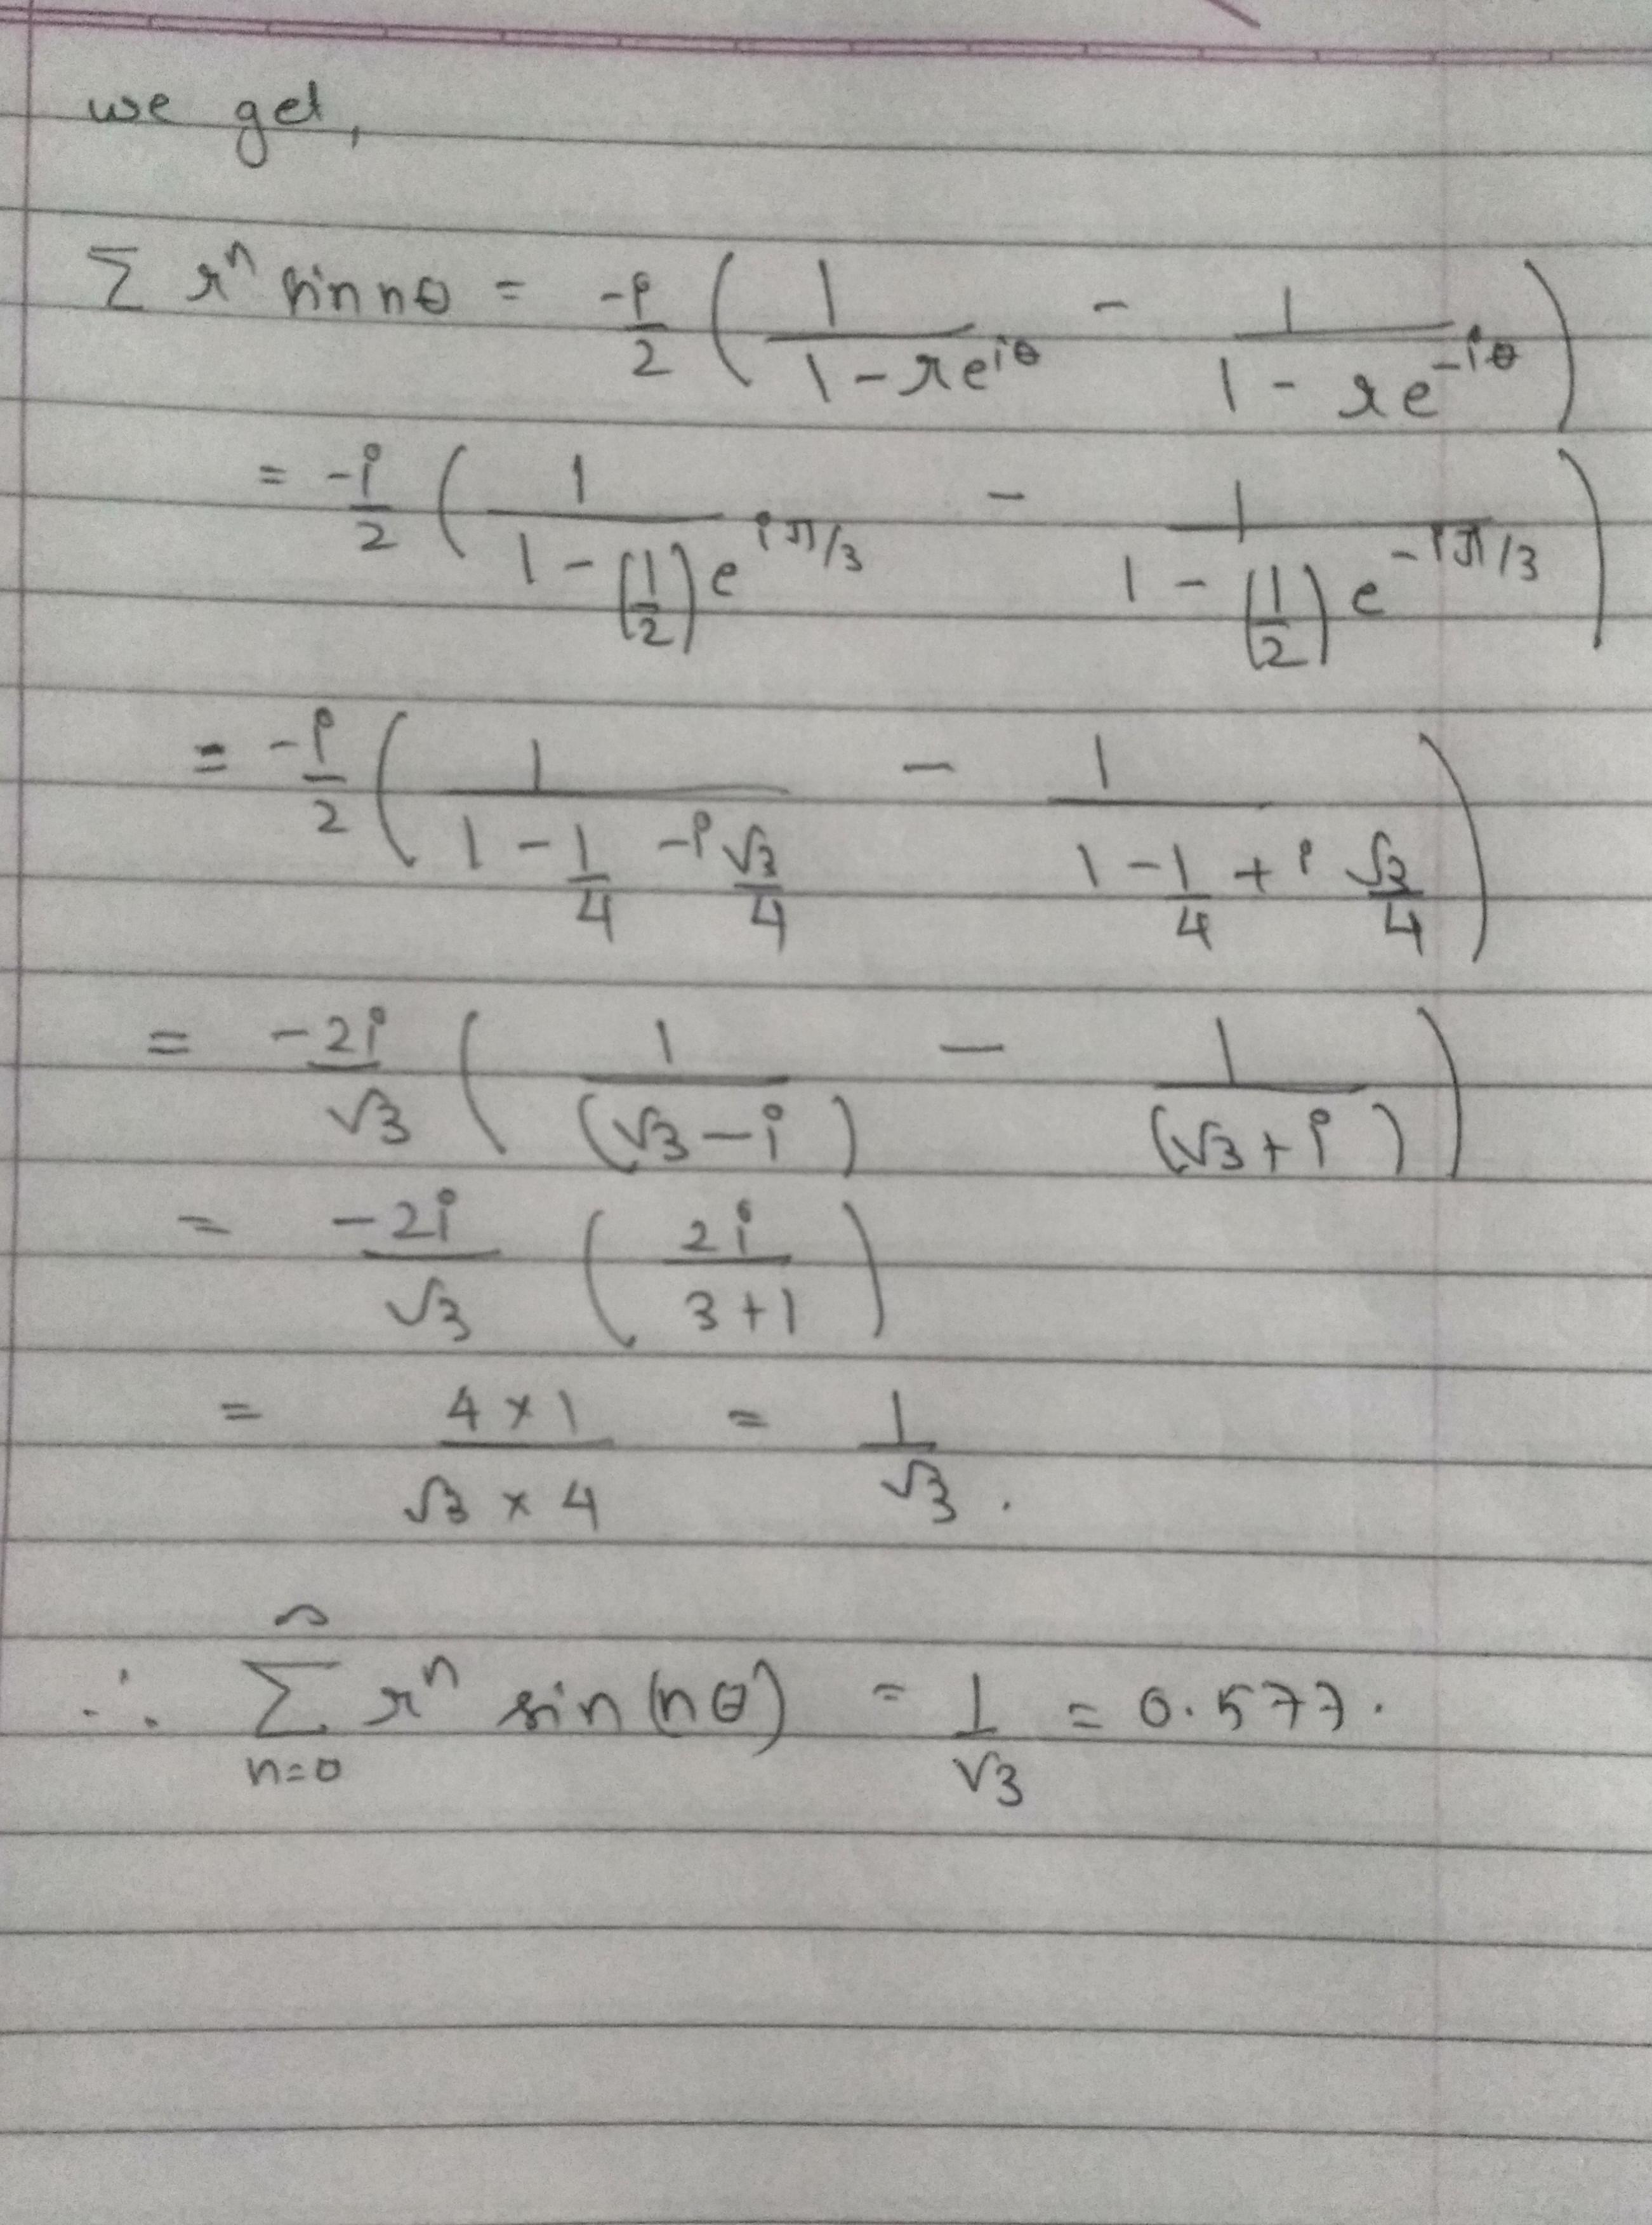 we get,
Σ rⁿ sin nθ = -i/2 ( 1/(1 - re^{iθ}) - 1/(1 - re^{-iθ}) )
= -i/2 ( 1/(1 - (1/2) e^{iπ/3}) - 1/(1 - (1/2) e^{-iπ/3}) )
= -i/2 ( 1/(1 - 1/4 - i √3/4) - 1/(1 - 1/4 + i √3/4) )
= -2i/√3 ( 1/(√3 - i) - 1/(√3 + i) )
= -2i/√3 ( 2i/(3+1) )
= (4 × 1)/(√3 × 4) = 1/√3 .
∴ Σ_{n=0}^{∞} rⁿ sin(nθ) = 1/√3 = 0.577.